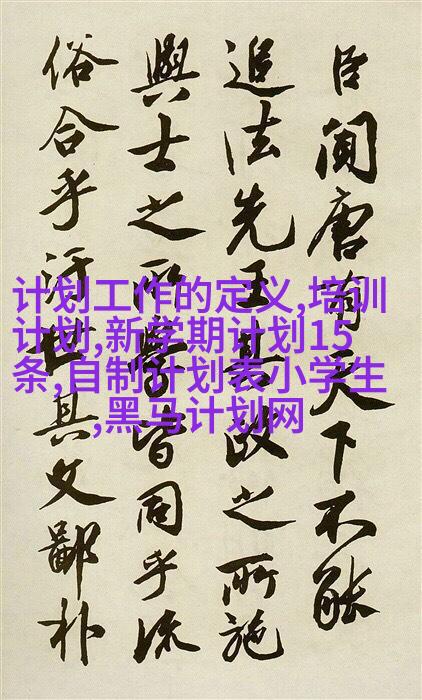 臣聞唐有天下不能
追法先王其政之所施
與士之所學皆同乎流
俗合乎汙世其文鄙朴
计划工作的定义,培训
计划,新学期计划15
条,自制计划表小学生
,黑马计划网